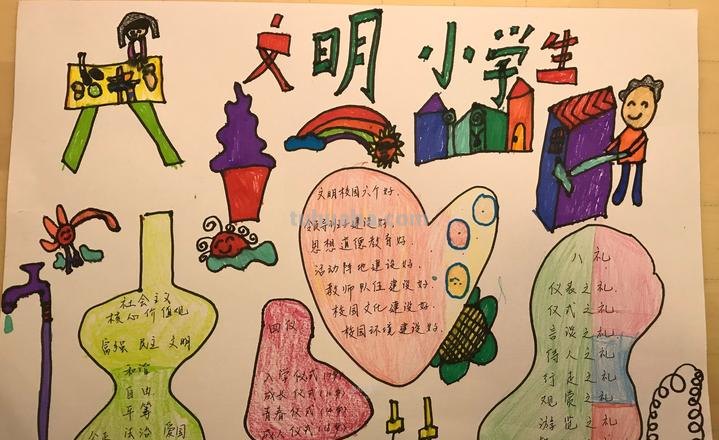 文明小学生
文明校园六个好.
领导班子建设好.
思想道德教育好.
活动阵地建设好.
教师队伍建设好.
校园文化建设好.
校园环境建设好.
社会主义
核心价值观
富强 民主 文明
和谐
自由
平等
法治 爱国
四仪
入学仪式
成长仪式
青春仪式
成人仪式
八礼
仪表之礼
仪式之礼
言谈之礼
待人之礼
行走之礼
观赏之礼
游览之礼